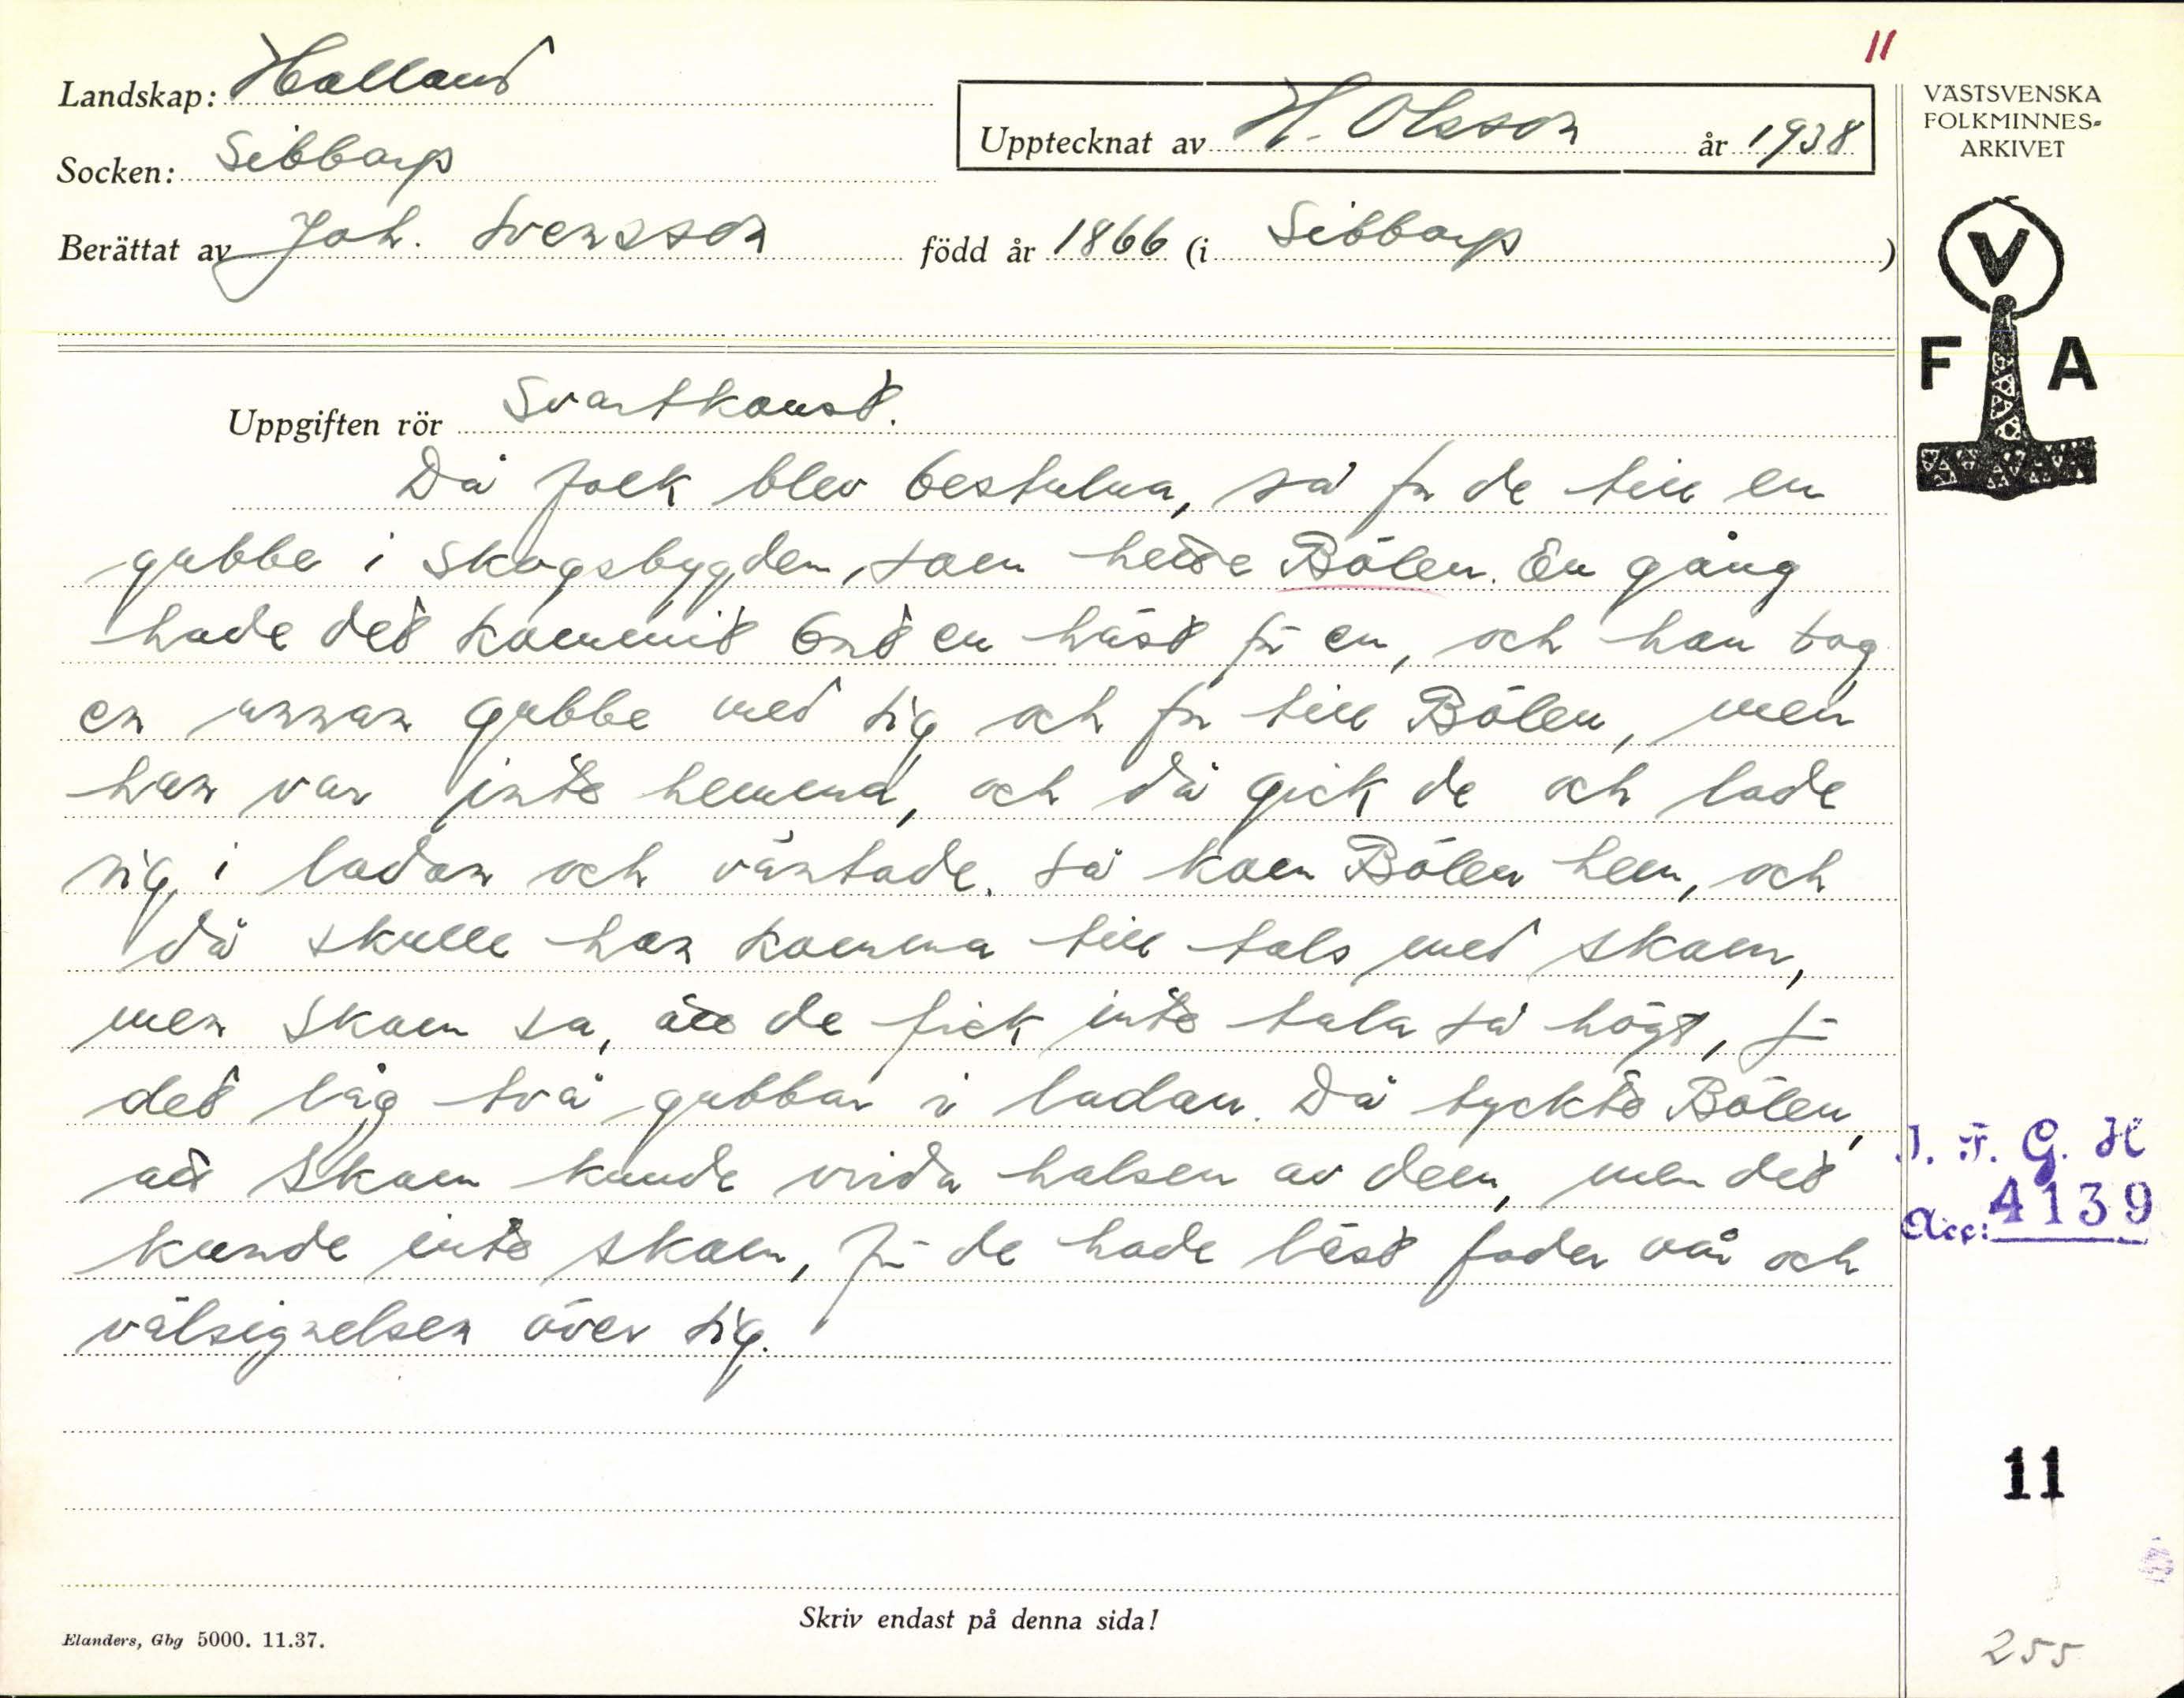 11
Landskap: Halland
Upptecknat av H. Olsson år 1938
Socken: Sibbarp
Berättat av Joh. Svensson född år 1866 (i Sibbarp)
VÄSTSVENSKA
FOLKMINNES-
ARKIVET
V
F A
Uppgiften rör Svartkonst.
Då folk blev bestulna, så for de till en
gubbe i Skogsbygden, som hette Bölen. En gång
hade det kommit bort en häst för en, och han tog
en annan gubbe med sig och for till Bölen, men
han var inte hemma, och då gick de och lade
sig i ladan och väntade. Så kom Bölen hem, och
då skulle han komma till tals med skam,
men Skam sa, att de fick inte tala så högt, för
det låg två gubbar i ladan. Då tyckte Bölen,
att Skam kunde vrida halsen av dem, men det
kunde inte skam, för de hade läst fader vår och
välsignelsen över sig.
I. F. G. H
Acc: 4139
11
Skriv endast på denna sida!
Elanders, Gbg 5000. 11.37.
255